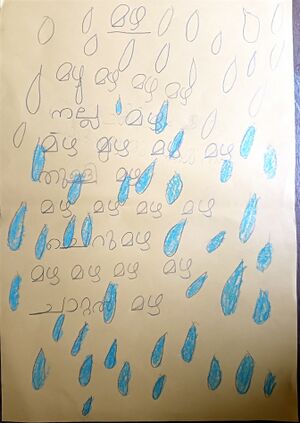 മഴ
മഴ മഴ മഴ മഴ
നല്ല മഴ
മഴ മഴ മഴ മഴ
തുള്ളി മഴ
മഴ മഴ മഴ മഴ
ചെറുമഴ
മഴ മഴ മഴ മഴ
ചാറ്റൽ മഴ